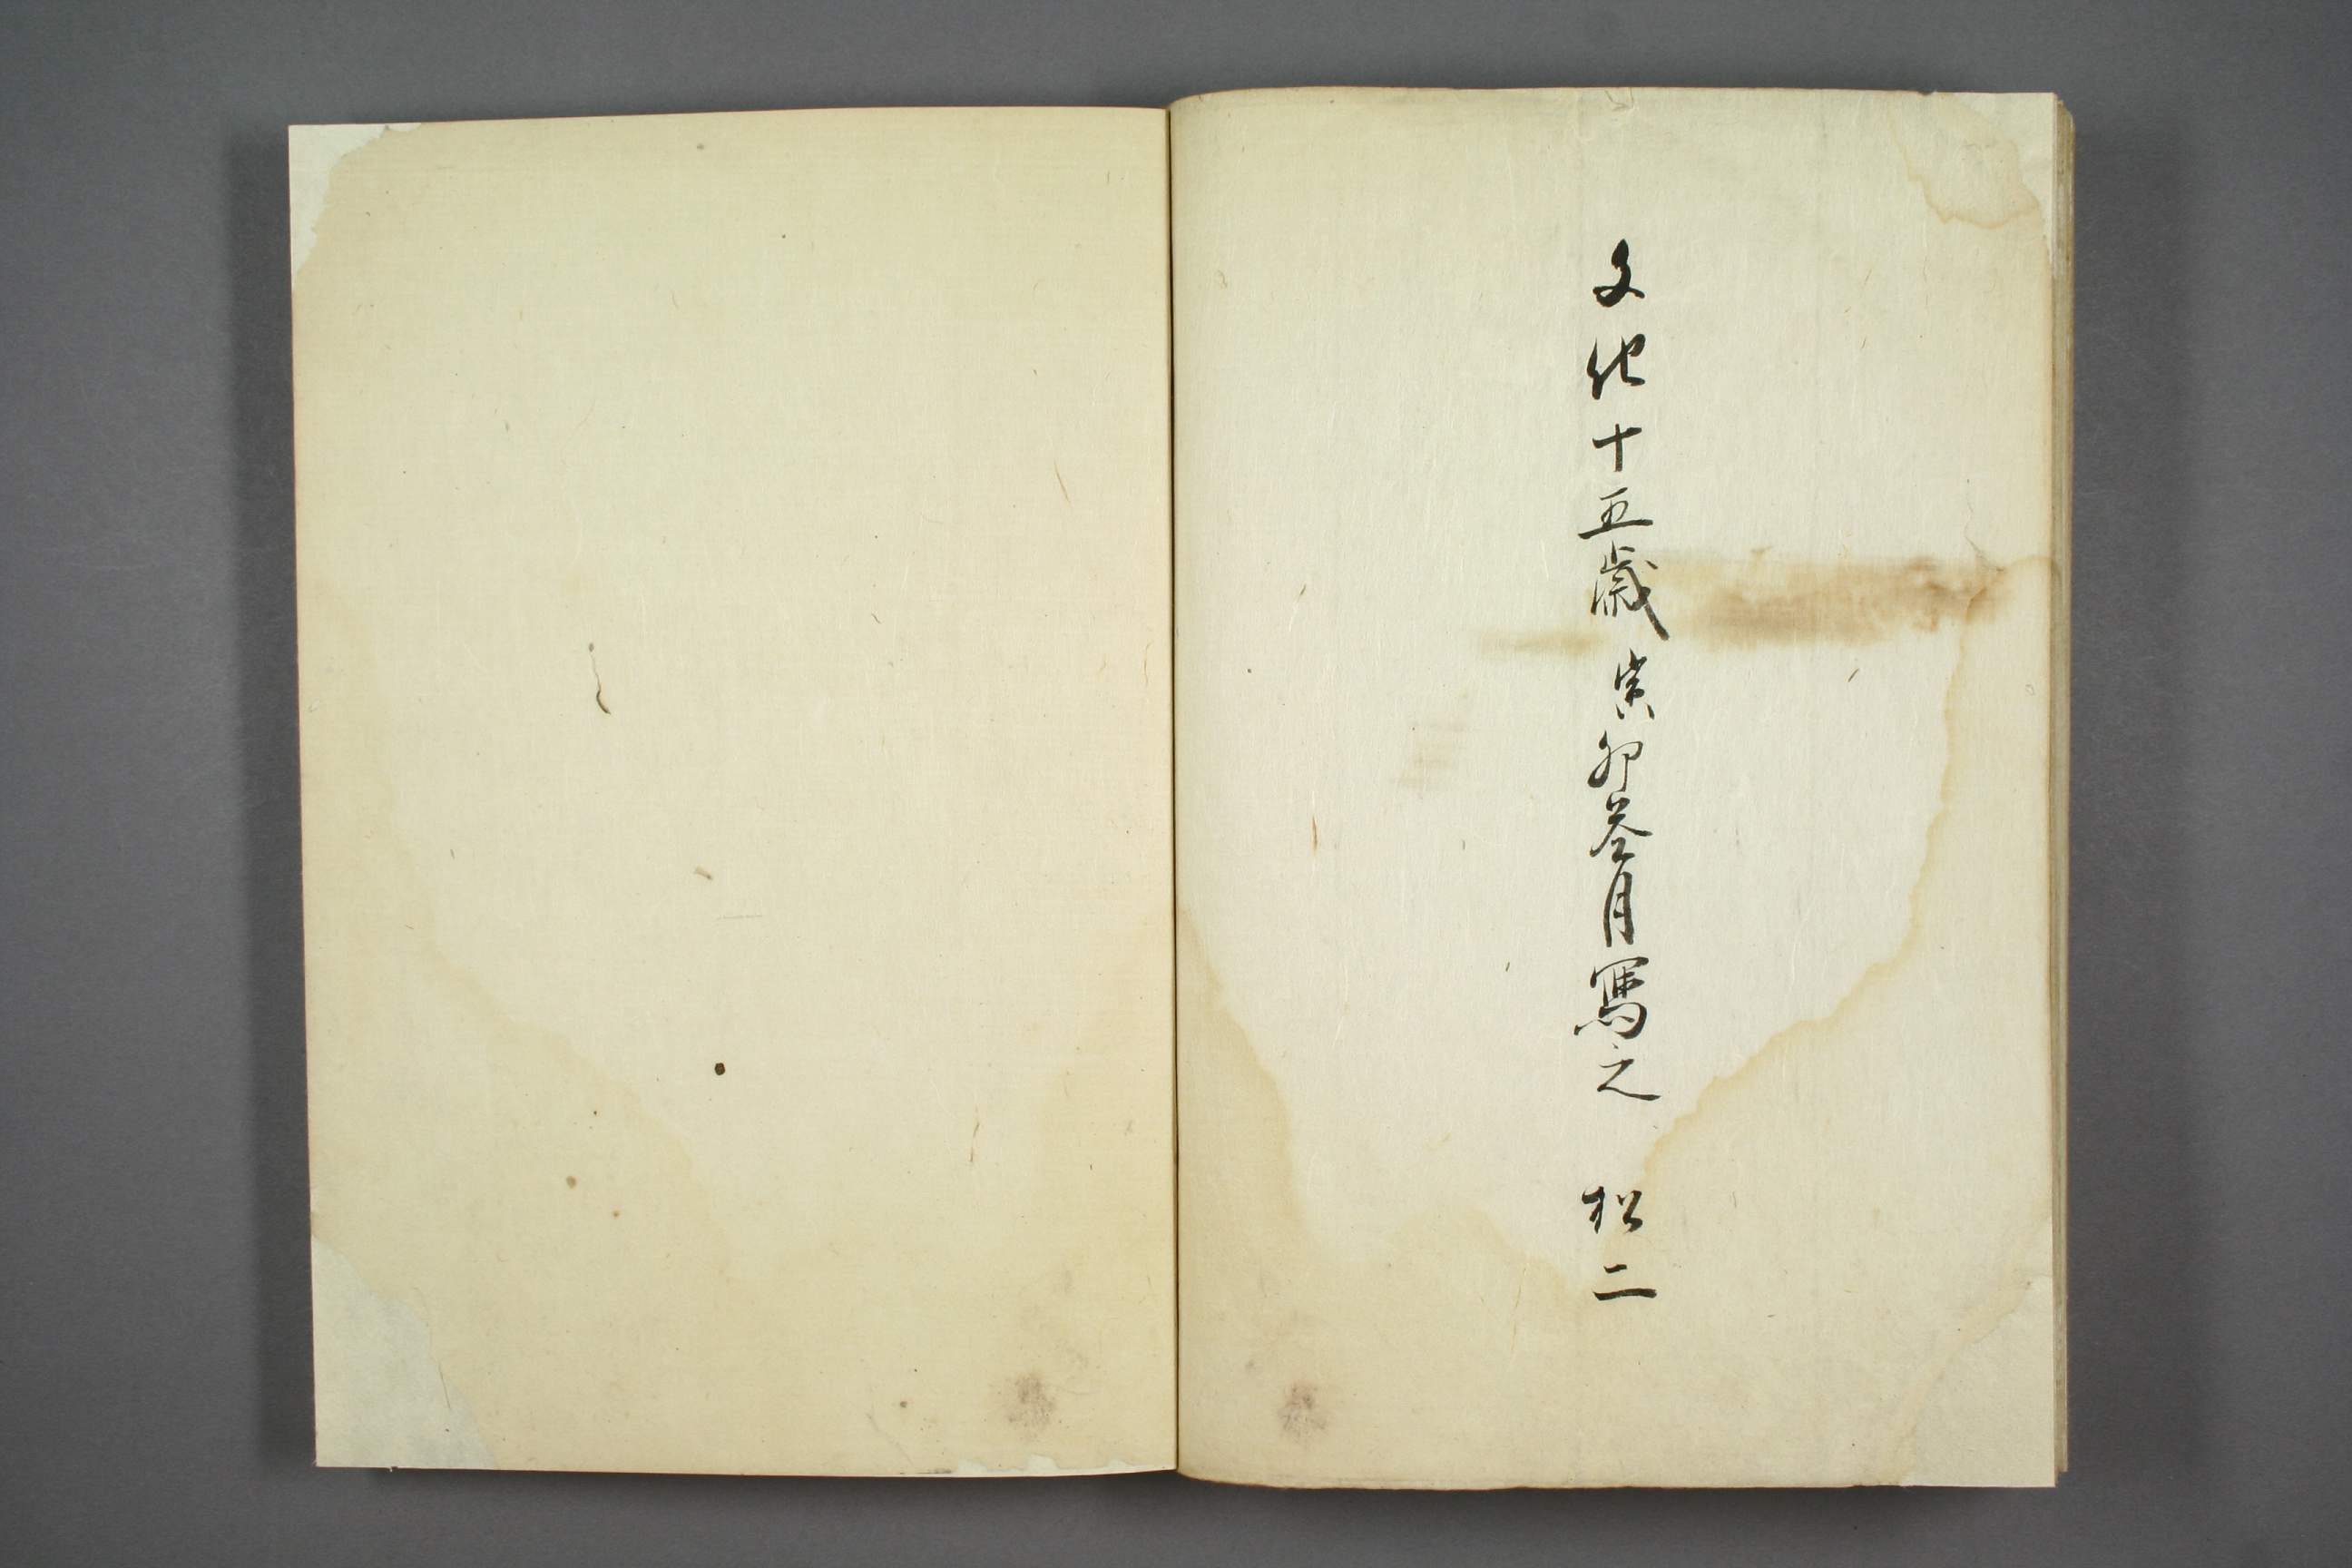 文化十五歳寅卯春月寫之 松二